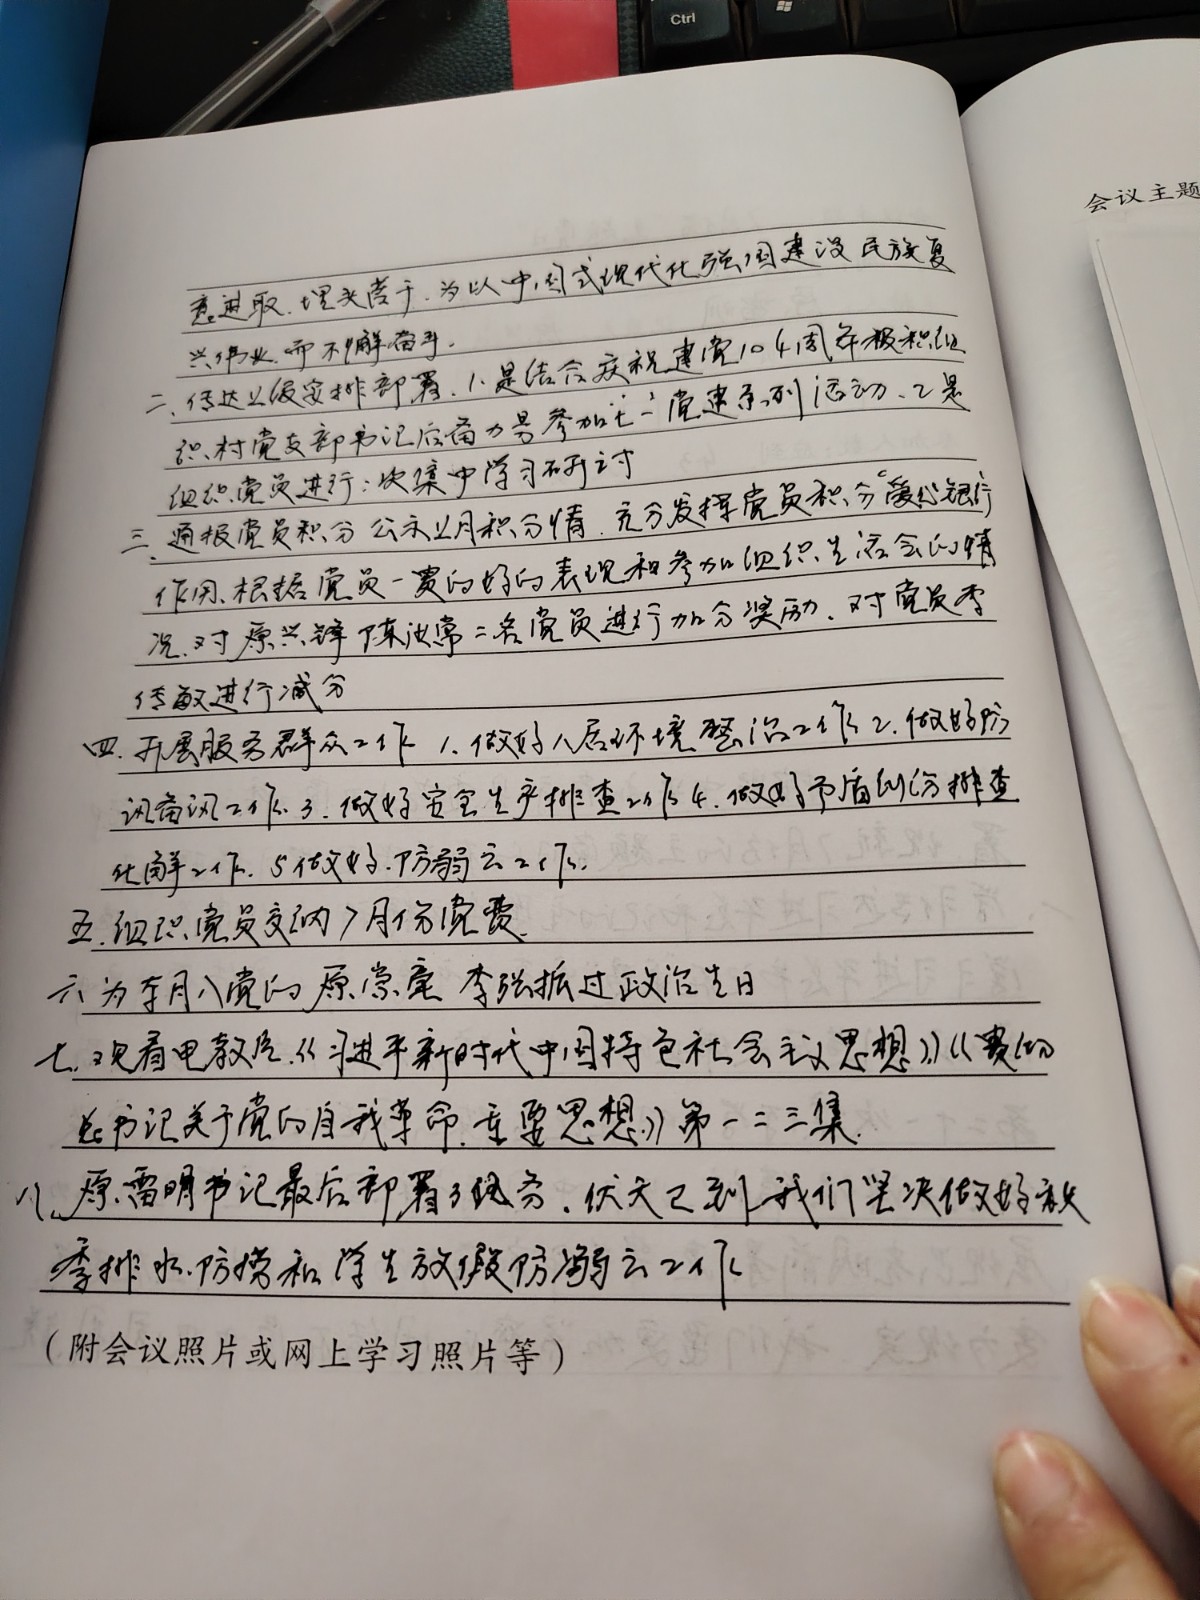 Ctrl
会议主题
意进取.埋头苦干.为以中国式现代化强国建设民族复
兴伟业.而不懈奋斗.
二.传达上级安排部署.1.是结合庆祝建党104周年极积组
织.村党支部书记后备力号参加七一党建系列活动、2是
组织党员进行:次集中学习研讨
三.通报党员积分公示上月积分情.充分发挥党员积分"爱心银行
作用.根据党员一贯的好的表现和参加组织生活会的情
况.对原兴锋 陈池常二名党员进行加分奖励.对党员李
传敏进行减分
四.开展服务群众工作 1.做好人居环境整治工作 2.做好防
汛备汛工作.3.做好安全生产排查工作 4.做好予盾纠纷排查
化解工作.5做好.防溺亡工作.
五.组织党员交纳7月份党费.
六为本月入党的原 李强振过政治生日
七.观看电教片.《习进平新时代中国特色社会主义思想》《
总书记关于党的自我革命.重要思想》第一二三集.
八.原雷明书记最后部署了任务.伏天已到我们坚决做好秋
季排水.防涝和学生放假防溺亡工作
(附会议照片或网上学习照片等)